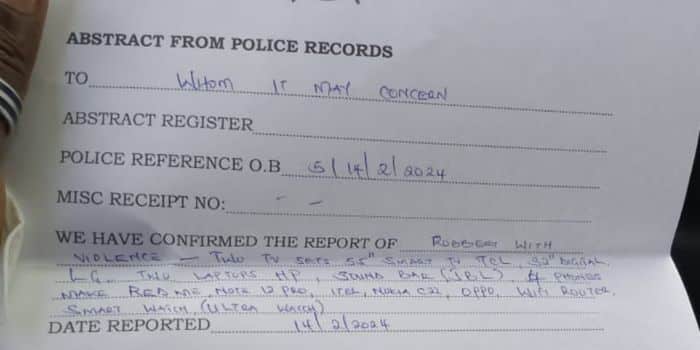 ABSTRACT FROM POLICE RECORDS
TO WHOM IT MAY CONCERN
ABSTRACT REGISTER
POLICE REFERENCE O.B 5/14/2/2024
MISC RECEIPT NO: - -
WE HAVE CONFIRMED THE REPORT OF ROBBERY WITH
VIOLENCE - TWO TV SETS 55" SMART TV TCL, 32" DIGITAL
LG, TWO LAPTOPS HP, SOUND BAR (JBL) 4 PHONES
MAKE REDME NOTE 12 PRO, ITEL, NOKIA C22, OPPO, WIFI ROUTER,
SMART WATCH (ULTRA WATCH)
DATE REPORTED 14/2/2024